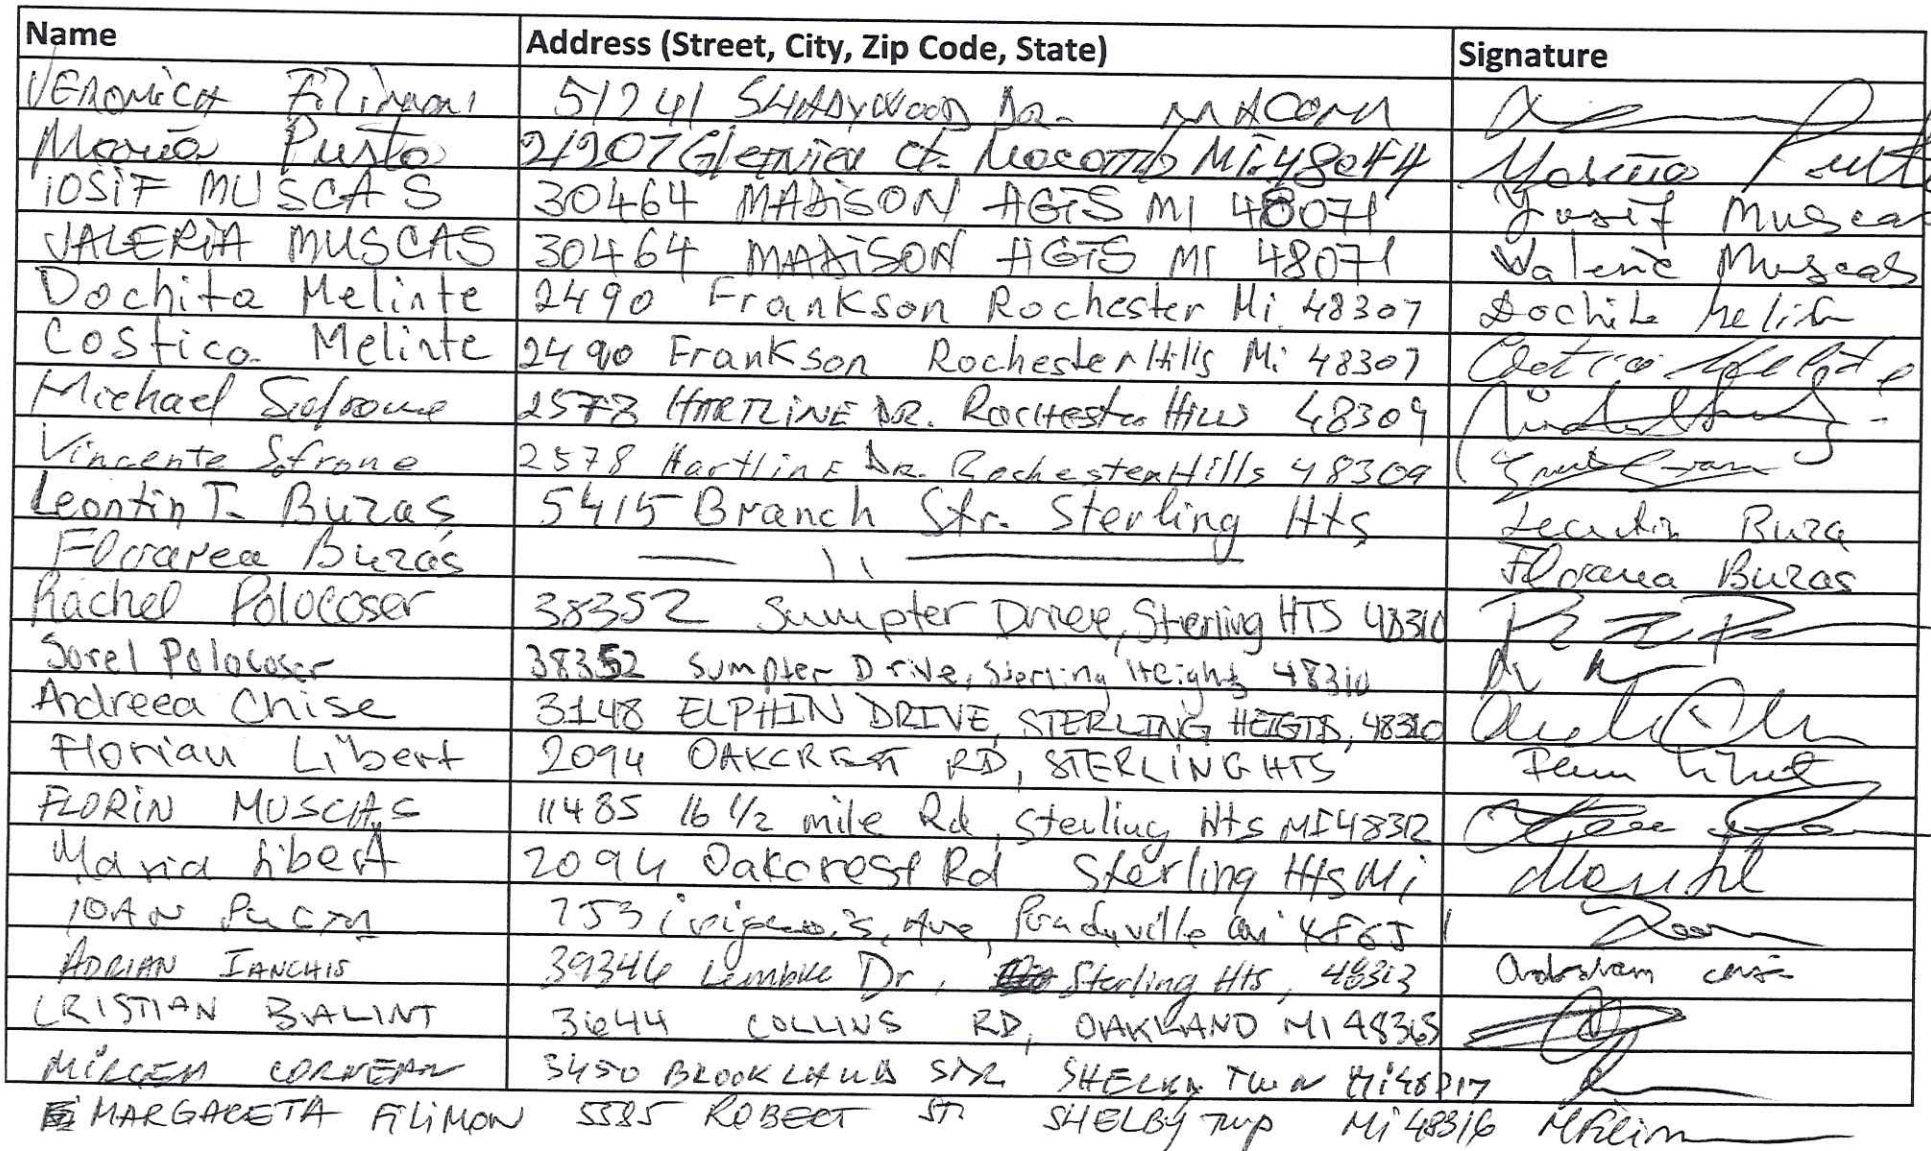 Name Address (Street, City, Zip Code, State) Signature
VERONICA Filimon 51241 SHADYWOOD Dr. MACOMB
Maria Pusta 21207 Glenview Ct. Macomb Mi. 48044 Pusta
iOSiF MUSCAS 30464 MADiSON HGTS MI 48071 Iosif Muscas
VALERiA MUSCAS 30464 MADiSON HGTS MI 48071 Muscas
Dochita Melinte 2490 Frankson Rochester Mi 48307 Dochita Melinte
Costica Melinte 2490 Frankson Rochester Hills Mi 48307
Michael Sofrone 2578 HARTLINE DR. Rochester Hills 48309
Vincente Sofrone 2578 Hartline DR. Rochester Hills 48309
Leontin T. Buzas 5415 Branch Str. Sterling Hts Leontin Buza
Floarea Buzas — \\ — Floarea Buzas
Rachel Polocoser 38352 Sumpter Drive, Sterling HTS 48310
Sorel Polocoser 38352 Sumpter Drive, Sterling Heights 48310
Andreea Chise 3148 ELPHIN DRIVE, STERLING HEIGTS, 48310
Florian Libert 2094 OAKCREST RD, STERLING HTS
FLORiN MUSCAS 11485 16 1/2 mile Rd, Sterling Hts MI 48312
Maria Libert 2094 Oakcrest Rd Sterling Hts Mi
IOAN 753 Ave,
ADRIAN IANCHIS 39346 Lembke Dr, Sterling Hts, 48313
CRISTIAN BALINT 3644 COLLINS RD, OAKLAND MI 48363
MiRCEA CORNEAN 3450 BROOKLANDS SHELBY TWN Mi 48317
MARGARETA FiLiMON 5535 ROBERT ST. SHELBY TWP Mi 48316 MFilimon